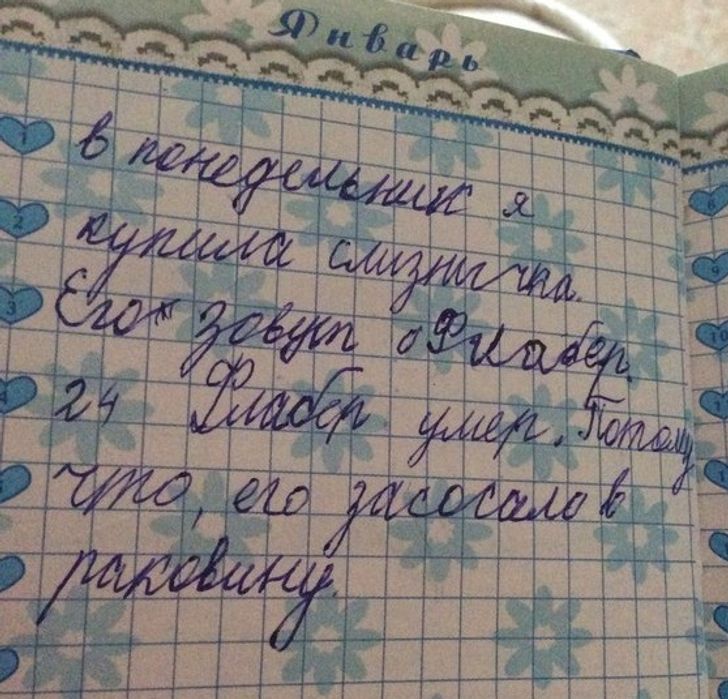 Январь
1 в понедельник я
2 купила слизнячка.
3 Его зовут Флабер.
4 24 Флабер умер. Потому
что, его засосало в
раковину.